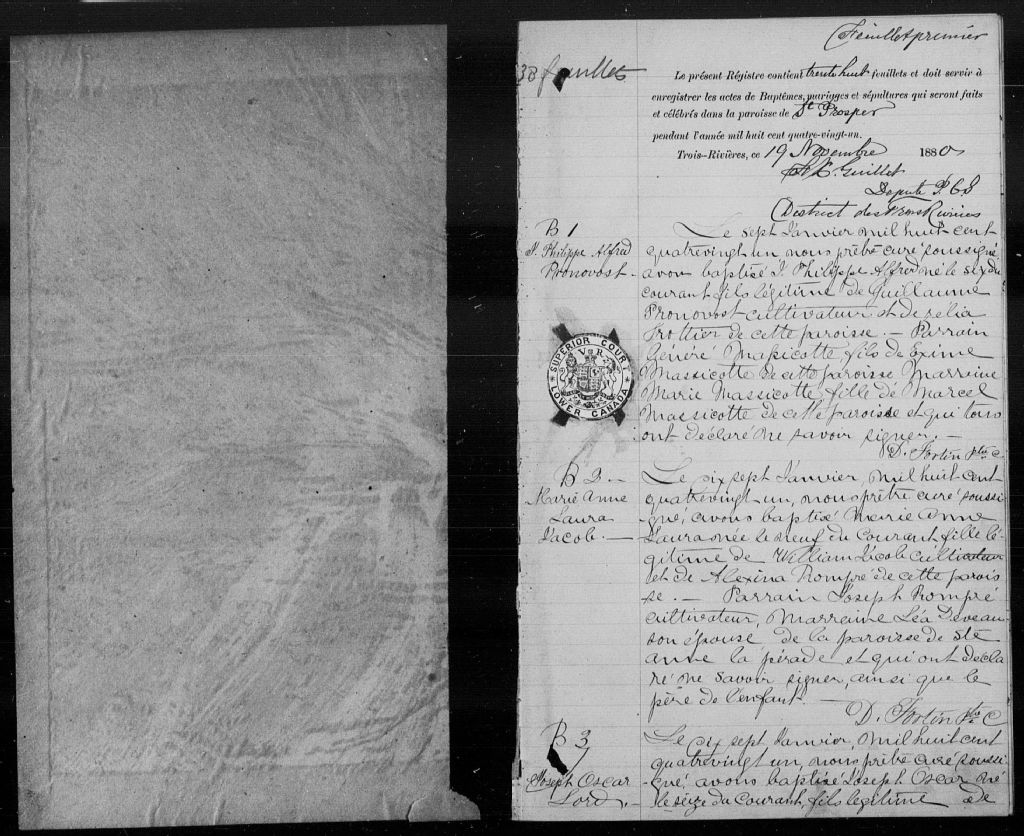 Feuillet premier
38 feuillets
Le présent Régistre contient trente huit feuillets et doit servir à
enregistrer les actes de Baptêmes, mariages et sépultures qui seront faits
et célébrés dans la paroisse de St Prosper
pendant l'année mil huit cent quatre-vingt-un.
Trois-Rivières, ce 19 Novembre 1880
Guillet
Député P. C. S
District des Trois Rivières
B 1
J. Philippe Alfred
Pronovost -
SUPERIOR COURT
V R
LOWER CANADA
Le sept Janvier mil huit cent
quatrevingt un nous prêbt curé soussigné
avon baptisé J. Philippe Alfred né le six du
courant fils légitime de Guillaume
Pronovost cultivateur et de zelia
Trottier de cette paroisse. - Parrain
Massicotte fils de Exime
Massicotte de cette paroisse Marraine
Marie Massicotte fille de Marcel
Massicotte de cette paroisse et qui tous
ont déclaré ne savoir signer. -
D. Fortin Ptre C.
B 2 -
Marie Anne
Laura
Jacob. -
Le dix sept Janvier, mil huit cent
quatrevingt un, nous prêtre curé soussi-
gné, avons baptisé Marie Anne
Laura née le neuf du courant fille lé-
gitime de William Jacob cultivateur
et de Alexina Rompré de cette parois
se. - Parrain Joseph Rompré
cultivateur, Marraine Léa Deveau
son épouse de la paroisse de Ste
Anne la pérade et qui ont décla
ré ne savoir signer, ainsi que le
père de l'enfant. -
D. Fortin Ptre C
B 3
Joseph Oscar
Lord, -
Le dix sept Janvier, mil huit cent
quatrevingt un, nous prêbt curé soussi-
gné, avons baptisé Joseph Oscar né
le seize du courant, fils légitime de